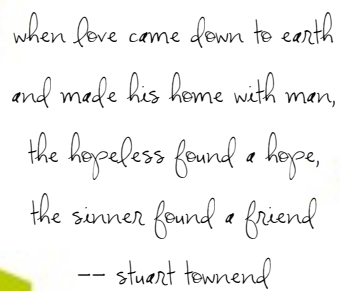 when love came down to earth
and made his home with man,
the hopeless found a hope,
the sinner found a friend
-- stuart townend